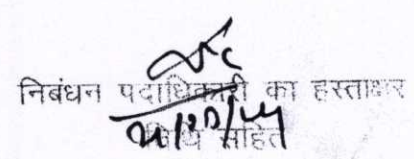 निबंधन पदाधिकारी का हस्ताक्षर
तिथि सहित